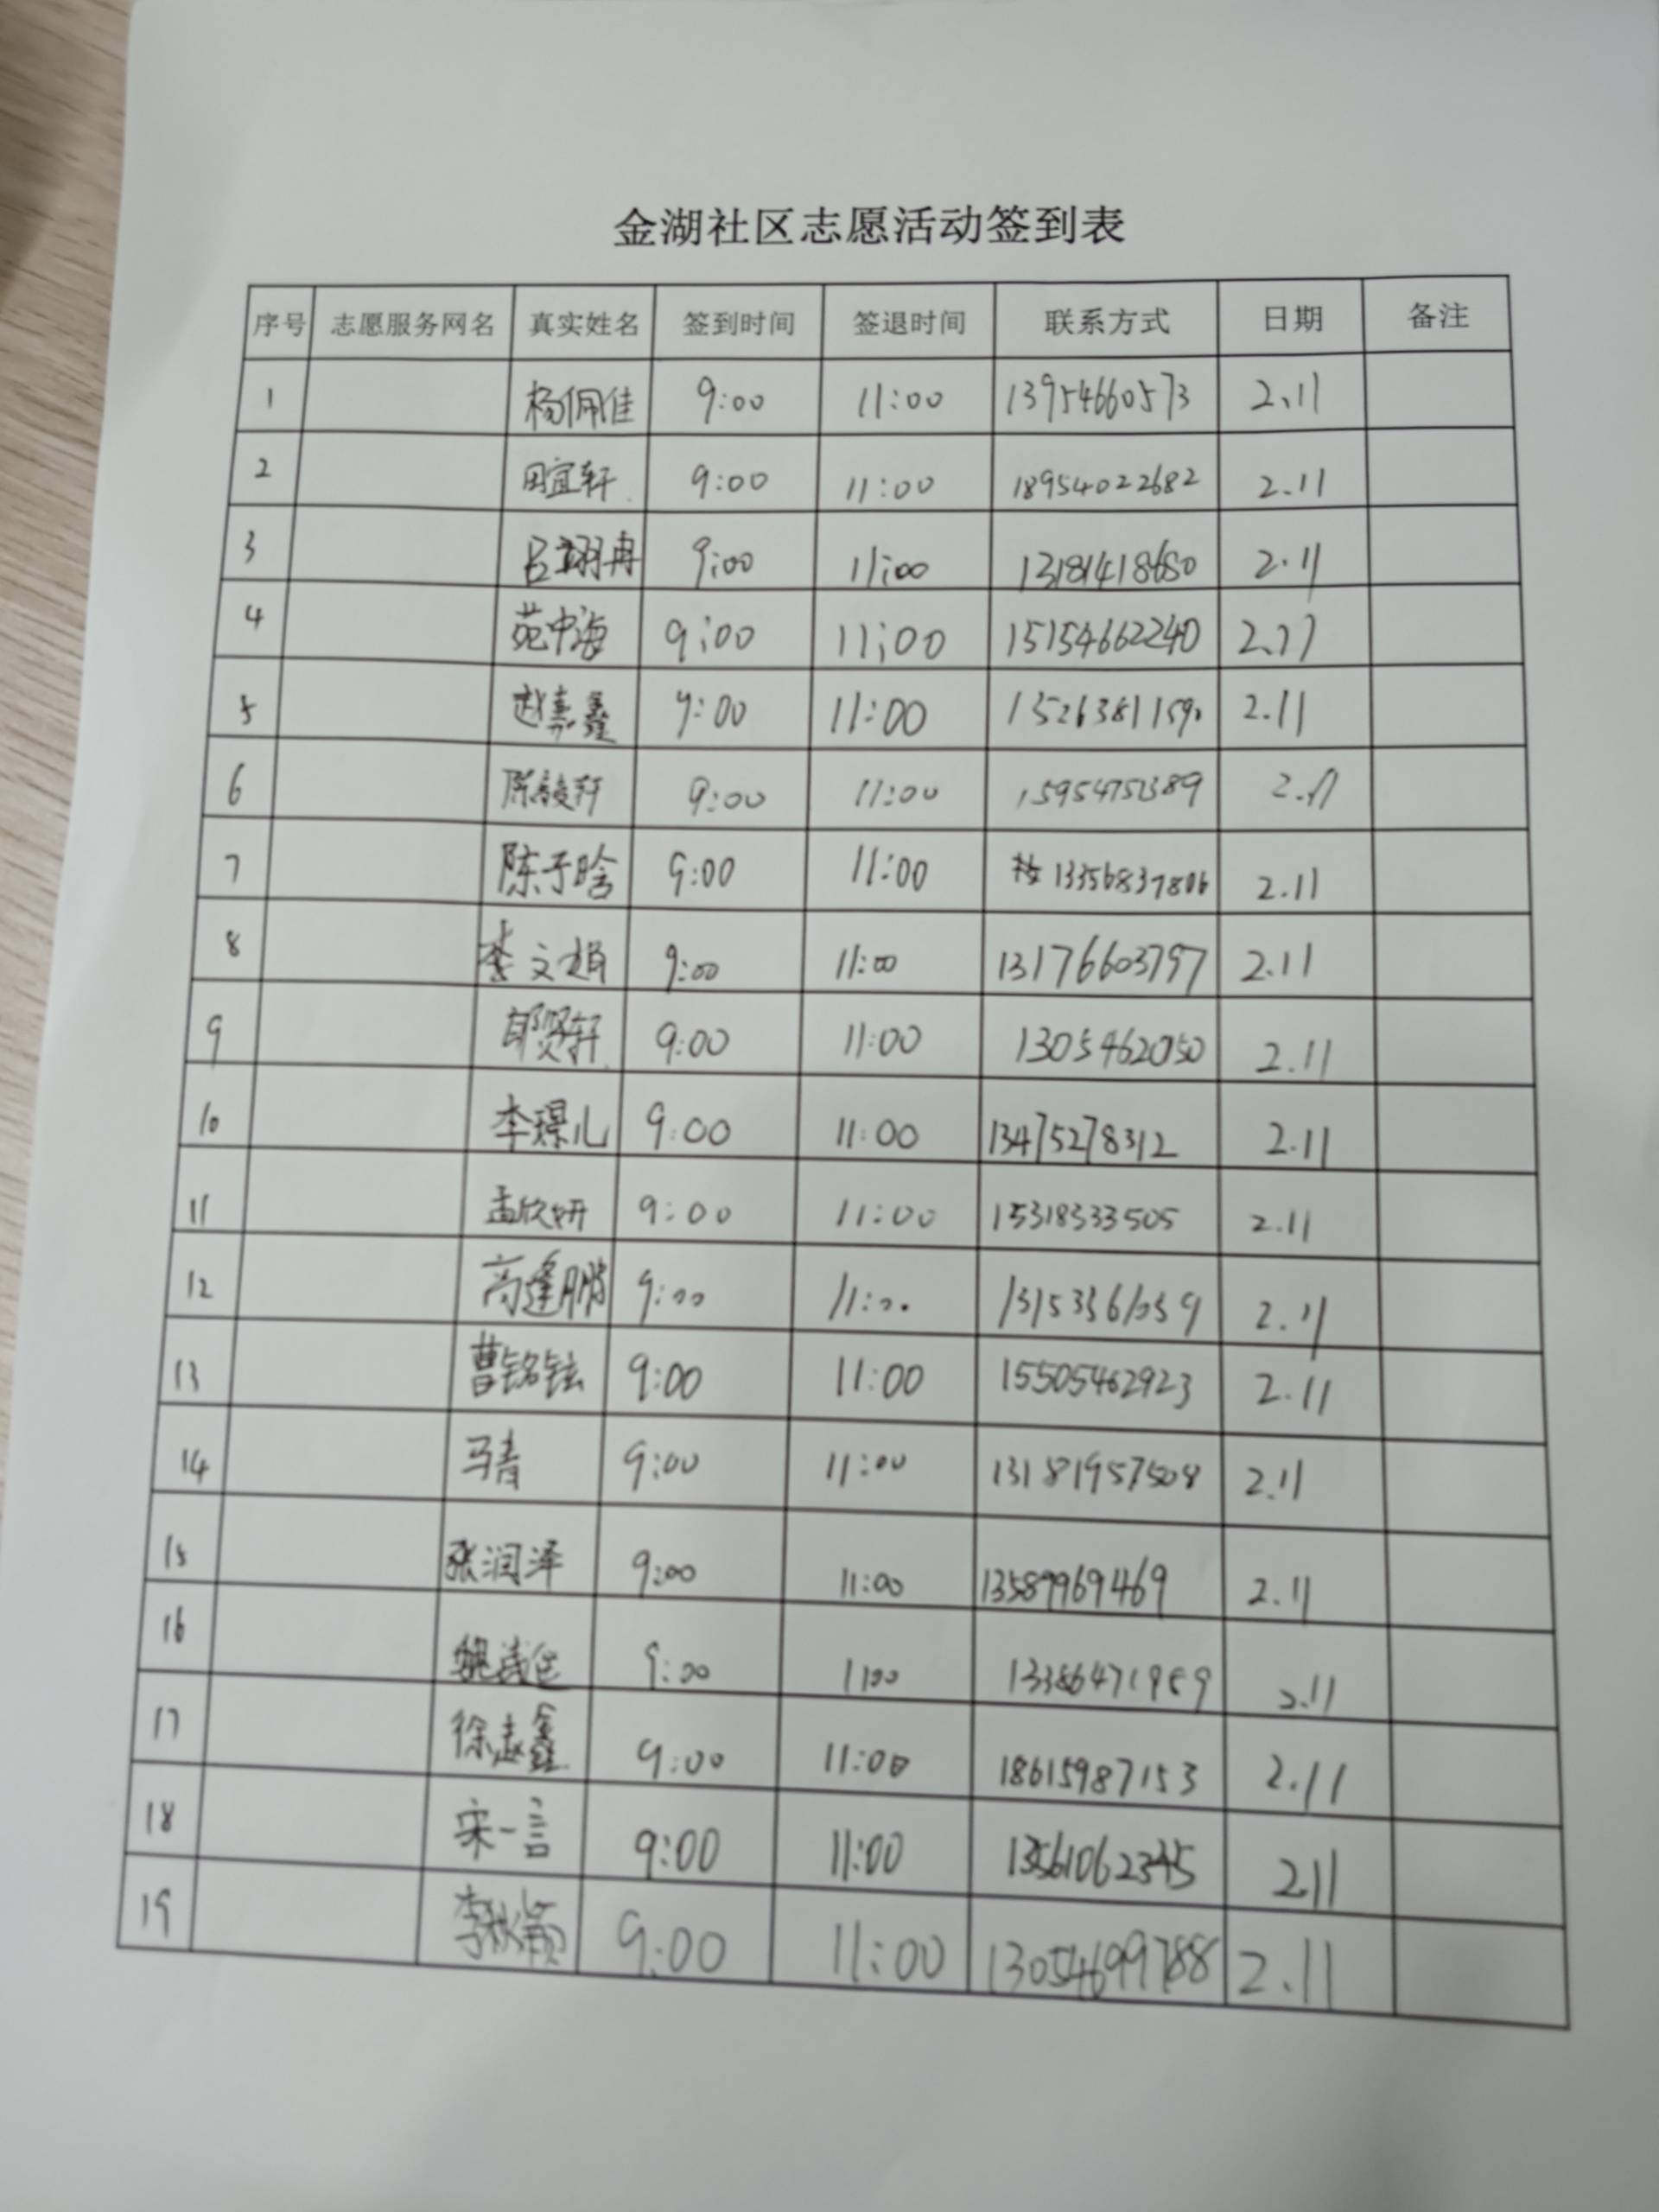 金湖社区志愿活动签到表
序号 志愿服务网名 真实姓名 签到时间 签退时间 联系方式 日期 备注
1 杨佩佳 9:00 11:00 13954660573 2.11
2 田宜轩 9:00 11:00 18954022682 2.11
3 吕翊冉 9:00 11:00 13181418680 2.11
4 苑中海 9:00 11:00 15154662240 2.11
5 赵嘉鑫 9:00 11:00 2.11
6 9:00 11:00 2.11
7 陈子晗 9:00 11:00 13356837806 2.11
8 李文 9:00 11:00 13176603797 2.11
9 9:00 11:00 2.11
10 李璟儿 9:00 11:00 13475278312 2.11
11 孟欣妍 9:00 11:00 15318333505 2.11
12 高逢鹏 9:00 11:00 2.11
13 曹铭铉 9:00 11:00 15505462923 2.11
14 马青 9:00 11:00 13181957508 2.11
15 张润泽 9:00 11:00 13589969469 2.11
16 9:00 1100 2.11
17 徐赵鑫 9:00 11:00 18615987153 2.11
18 宋一言 9:00 11:00 13561062345 2.11
19 李秋颖 9:00 11:00 13054699788 2.11